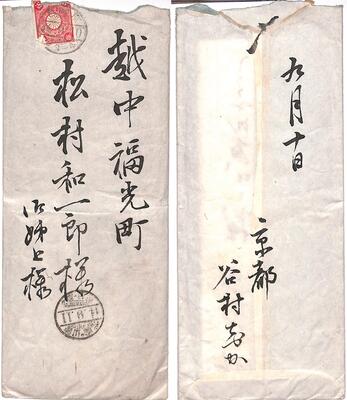 越中福光町
松村和一郎様
御姉上様
九月十日
京都
谷村